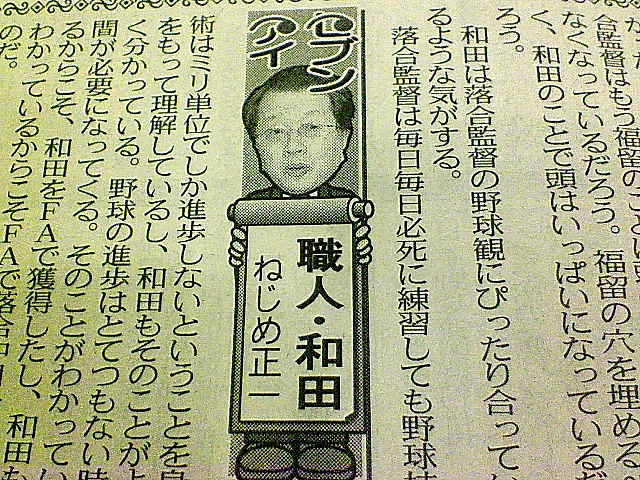 合監督はもう福留のこと
なくなっているだろう。福留の穴を埋める
く、和田のことで頭はいっぱいになっているだ
ろう。
和田は落合監督の野球観にぴったり合ってい
るような気がする。
落合監督は毎日毎日必死に練習しても野球技
セブン
アイ
職人・和田
ねじめ正一
術はミリ単位でしか進歩しないということを身
をもって理解しているし、和田もそのことがよ
く分かっている。野球の進歩はとてつもない時
間が必要になってくる。そのことがわかってい
るからこそ、和田をFAで獲得したし、和田も
わかっているからこそFAで落合中日
のだ。